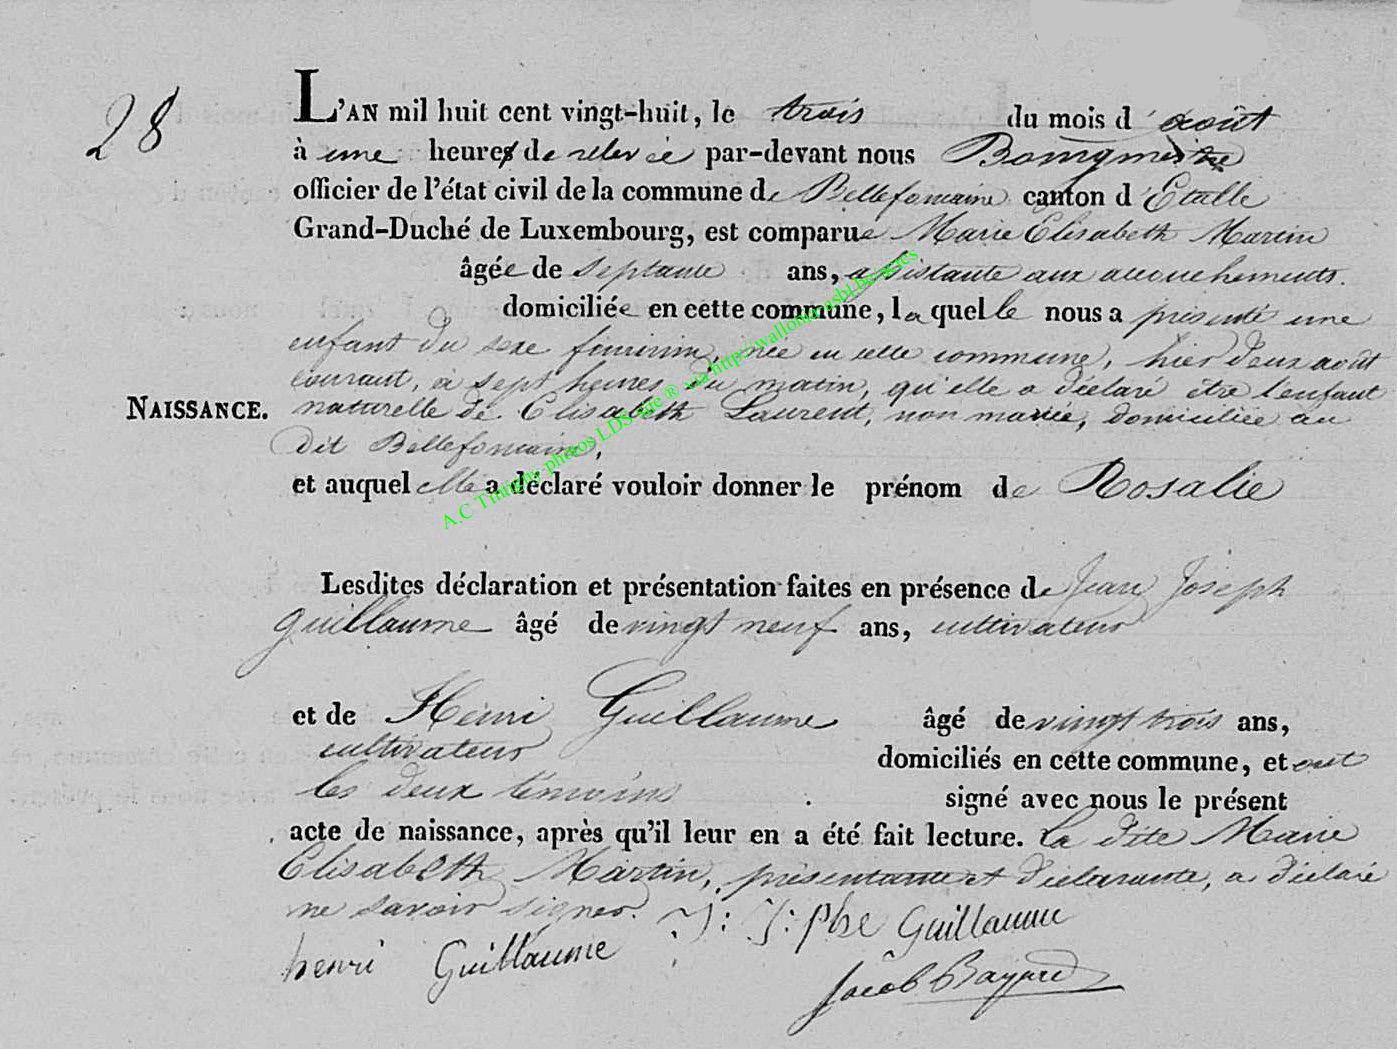 28
L'AN mil huit cent vingt-huit, le trois du mois d'août
à une heure de relevée par-devant nous Bourgmestre
officier de l'état civil de la commune de Bellefontaine canton d'Etalle
Grand-Duché de Luxembourg, est comparue Marie Elisabeth Martin
âgée de septante ans, assistante aux accouchements.
domiciliée en cette commune, laquelle nous a présenté une
enfant du sexe féminin, née en cette commune, hier deux août
courant, à sept heures du matin, qu'elle a déclaré être l'enfant
NAISSANCE. naturelle de Elisabeth Laurent, non mariée, domiciliée au
dit Bellefontaine,
et auquel elle a déclaré vouloir donner le prénom de Rosalie
Lesdites déclaration et présentation faites en présence de Jean Joseph
Guillaume âgé de vingt neuf ans, cultivateur
et de Henri Guillaume âgé de vingt trois ans,
cultivateur domiciliés en cette commune, et ont
les deux témoins signé avec nous le présent
acte de naissance, après qu'il leur en a été fait lecture. La dite Marie
Elisabeth Martin, présentante et déclarante, a déclaré
ne savoir signer. J: J:phe Guillaume
henri Guillaume
Jacob Bayard
A.C Tintigny photos LDS site ® via http://wallonia-asbl.be/actes